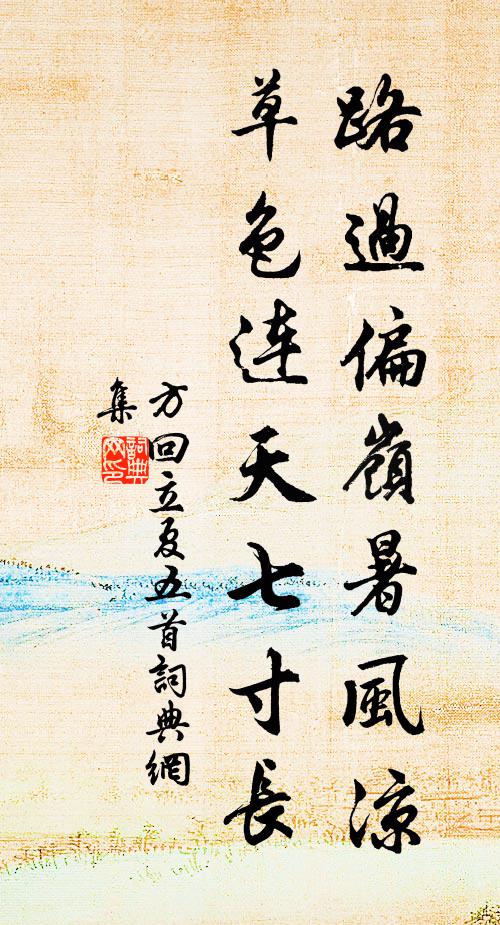 路過偏嶺暑風凉
草色連天七寸長
方回立夏五首詞典網
集
詞典
网